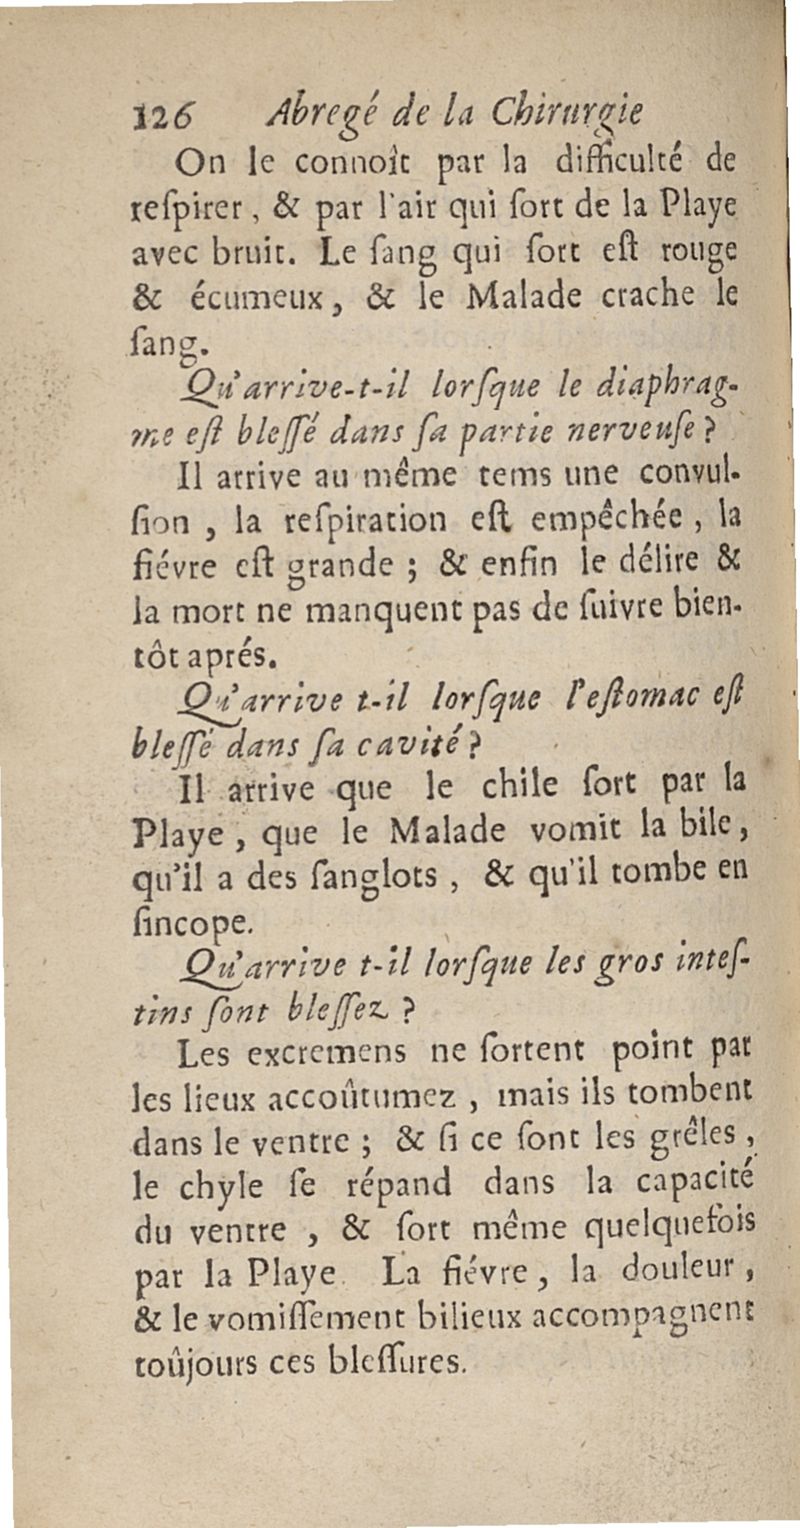 126 Abregé de la Chirurgie
On le connoît par la difficulté de
reſpirer, & par l'air qui ſort de la Playe
avec bruit. Le ſang qui ſort eſt rouge
& écumeux, & le Malade crache le
ſang.
Qu'arrive-t-il lorſque le diaphrag-
me eſt bleſſé dans ſa partie nerveuſe?
Il arrive au même tems une convul-
ſion, la reſpiration eſt empêchée, la
fiévre eſt grande; & enfin le délire &
la mort ne manquent pas de ſuivre bien-
tôt aprés.
Qu'arrive t-il lorſque l'eſtomac eſt
bleſſé dans ſa cavité?
Il arrive que le chile ſort par la
Playe, que le Malade vomit la bile,
qu'il a des ſanglots, & qu'il tombe en
ſincope.
Qu'arrive t-il lorſque les gros inteſ-
tins ſont bleſſez?
Les excremens ne ſortent point par
les lieux accoûtumez, mais ils tombent
dans le ventre; & ſi ce ſont les grêles,
le chyle ſe répand dans la capacité
du ventre, & ſort même quelquefois
par la Playe. La fiévre, la douleur,
& le vomiſſement bilieux accompagnent
toûjours ces bleſſures.